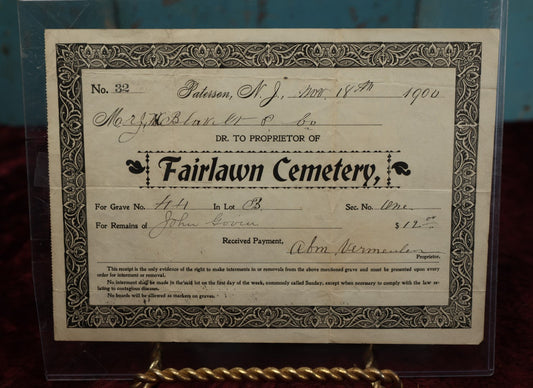 No. 32 Paterson, N. J., Nov 18th 1900
Mr J. H Blauvelt & Co
DR. TO PROPRIETOR OF
Fairlawn Cemetery,
For Grave No. 44 In Lot B. Sec. No. One
For Remains of John Goven $12.00
Received Payment, Abm Vermeulen
Proprietor.
This receipt is the only evidence of the right to make interments in or removals from the above mentioned grave and must be presented upon every
order for interment or removal.
No interment may be made in the said lot on the first day of the week, commonly called Sunday, except when necessary to comply with the law re-
lating to contagious diseases.
No boards will be allowed as markers on graves.